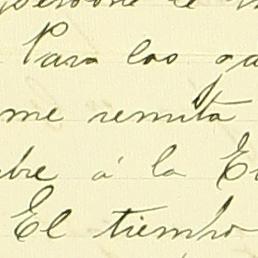 Para los ga
me remita
bre á la E
El tiempo